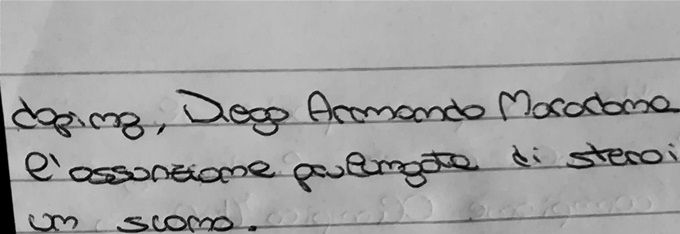 doping, Diego Armando Maradona
l'assunzione prolungata di steroi
un scomo.